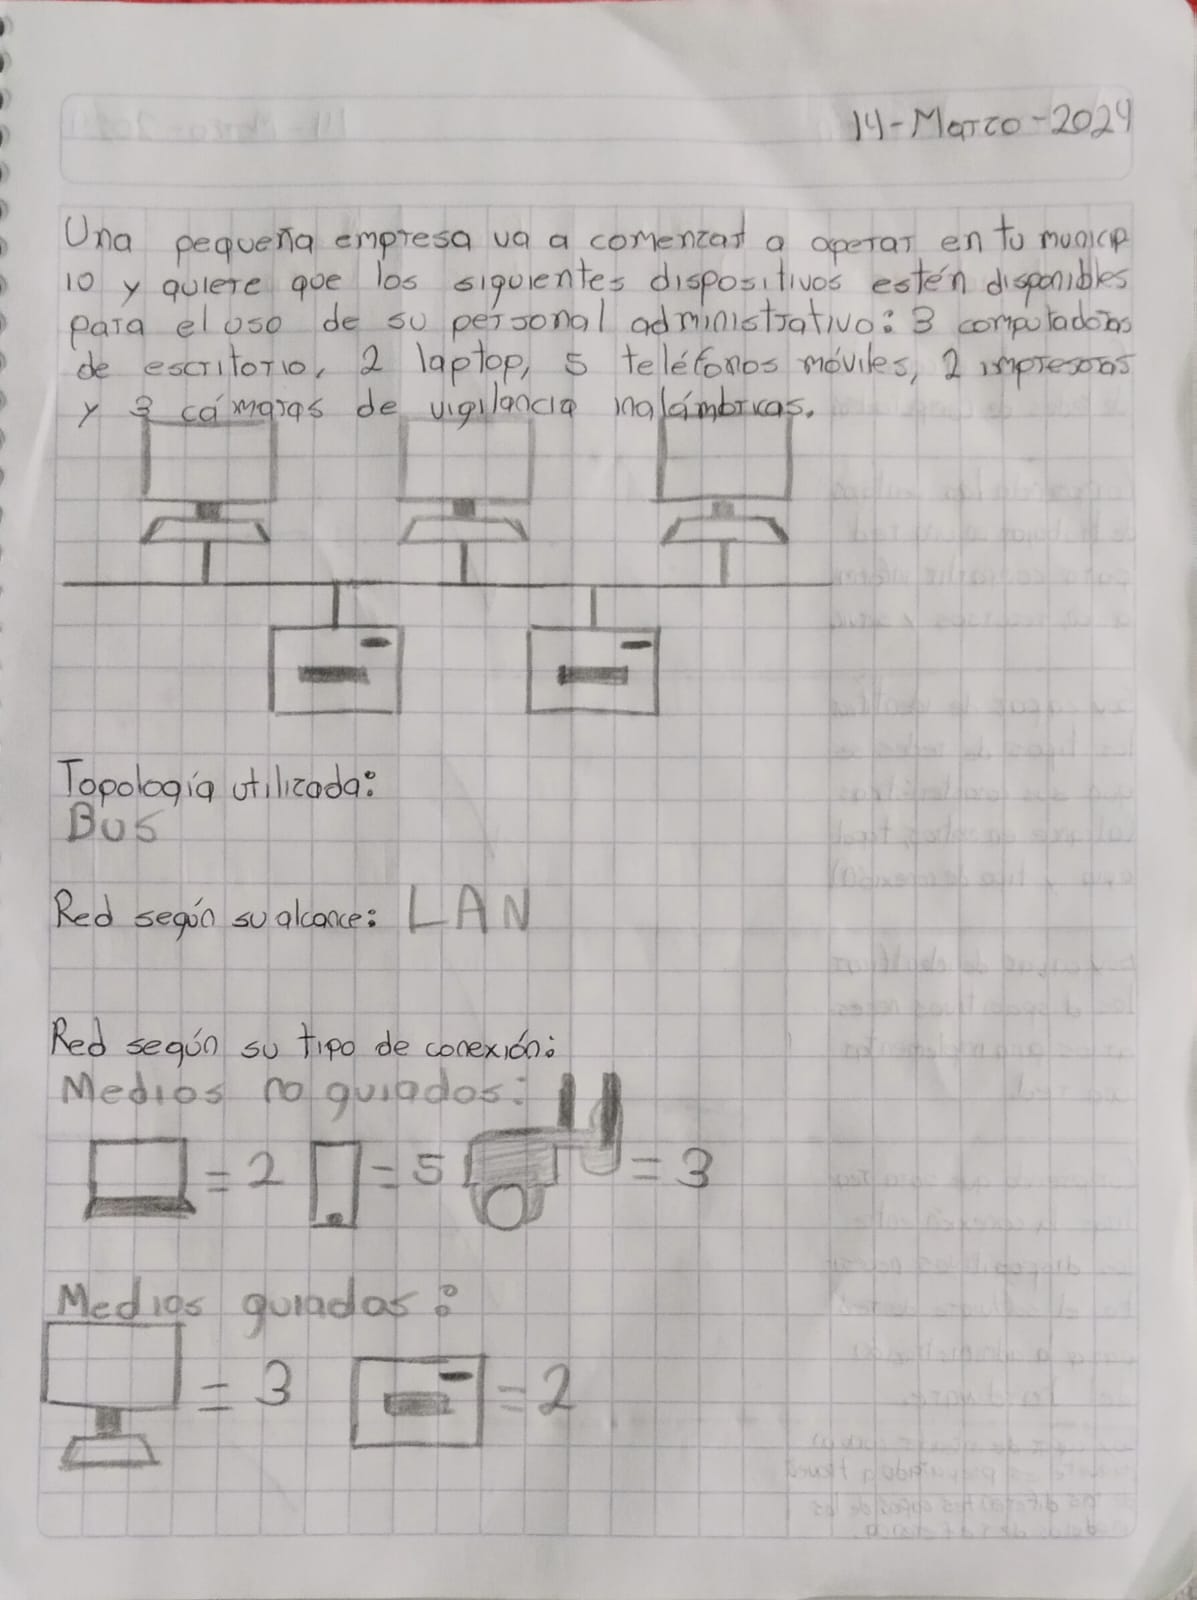 14-Marzo-2024
Una pequeña empresa va a comenzar a operar en tu municip
io y quiere que los siguientes dispositivos estén disponibles
para el uso de su personal administrativo: 3 computadoras
de escritorio, 2 laptop, 5 teléfonos móviles, 2 impresoras
y 3 cámaras de vigilancia inalámbricas.
Topología utilizada:
Bus
Red según su alcance: LAN
Red según su tipo de conexión:
Medios no guiados:
= 2 = 5 = 3
Medios guiados:
= 3 = 2